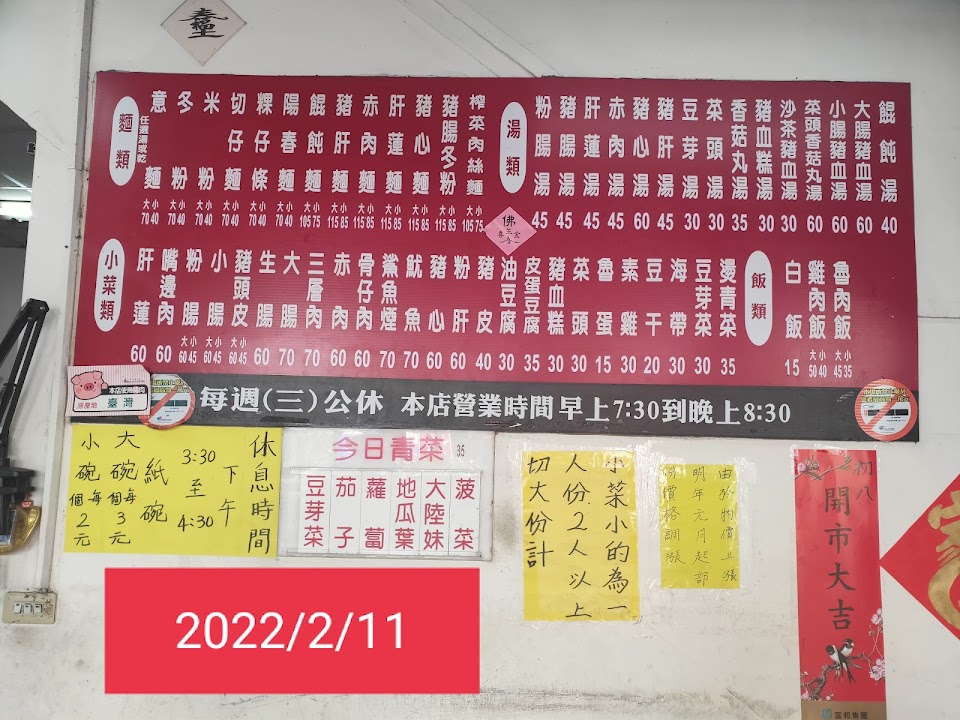 麵類
任選湯或乾
意麵 大70 小40
冬粉 大70 小40
米粉 大70 小40
切仔麵 大70 小40
粿仔條 大70 小40
陽春麵 大70 小40
餛飩麵 大105 小75
豬肝麵 大115 小85
赤肉麵 大115 小85
肝蓮麵 大115 小85
豬心麵 大115 小85
豬腸冬粉 大115 小85
榨菜肉絲麵 大105 小75
湯類
粉腸湯 45
豬腸湯 45
肝蓮湯 45
赤肉湯 45
豬心湯 60
豬肝湯 45
豆芽湯 30
菜頭湯 30
香菇丸湯 35
豬血糕湯 30
沙茶豬血湯 30
菜頭香菇丸湯 60
小腸豬血湯 60
大腸豬血湯 60
餛飩湯 40
佛
小菜類
肝蓮 60
嘴邊肉 60
粉腸 大60 小45
小腸 大60 小45
豬頭皮 大60 小45
生腸 60
大腸 70
三層肉 70
赤肉 60
骨仔肉 70
鯊魚煙 70
魷魚 70
豬心 60
粉肝 60
豬皮 40
油豆腐 30
皮蛋豆腐 35
豬血糕 30
菜頭 30
魯蛋 15
素雞 30
豆干 20
海帶 30
豆芽菜 30
燙青菜 35
飯類
白飯 15
雞肉飯 大50 小40
魯肉飯 大45 小35
本店使用豬肉
原產地
臺灣
每週(三)公休 本店營業時間早上7:30到晚上8:30
休息時間
下午
3:30至4:30
紙碗
大碗每個3元
小碗每個2元
今日青菜 35
菠菜
大陸妹
地瓜葉
蘿蔔
茄子
豆芽菜
小菜小的為一
人份2人以上
切大份計
由於物價上漲
明年元月起部
份價格調漲
初八
開市大吉
富邦集團
2022/2/11